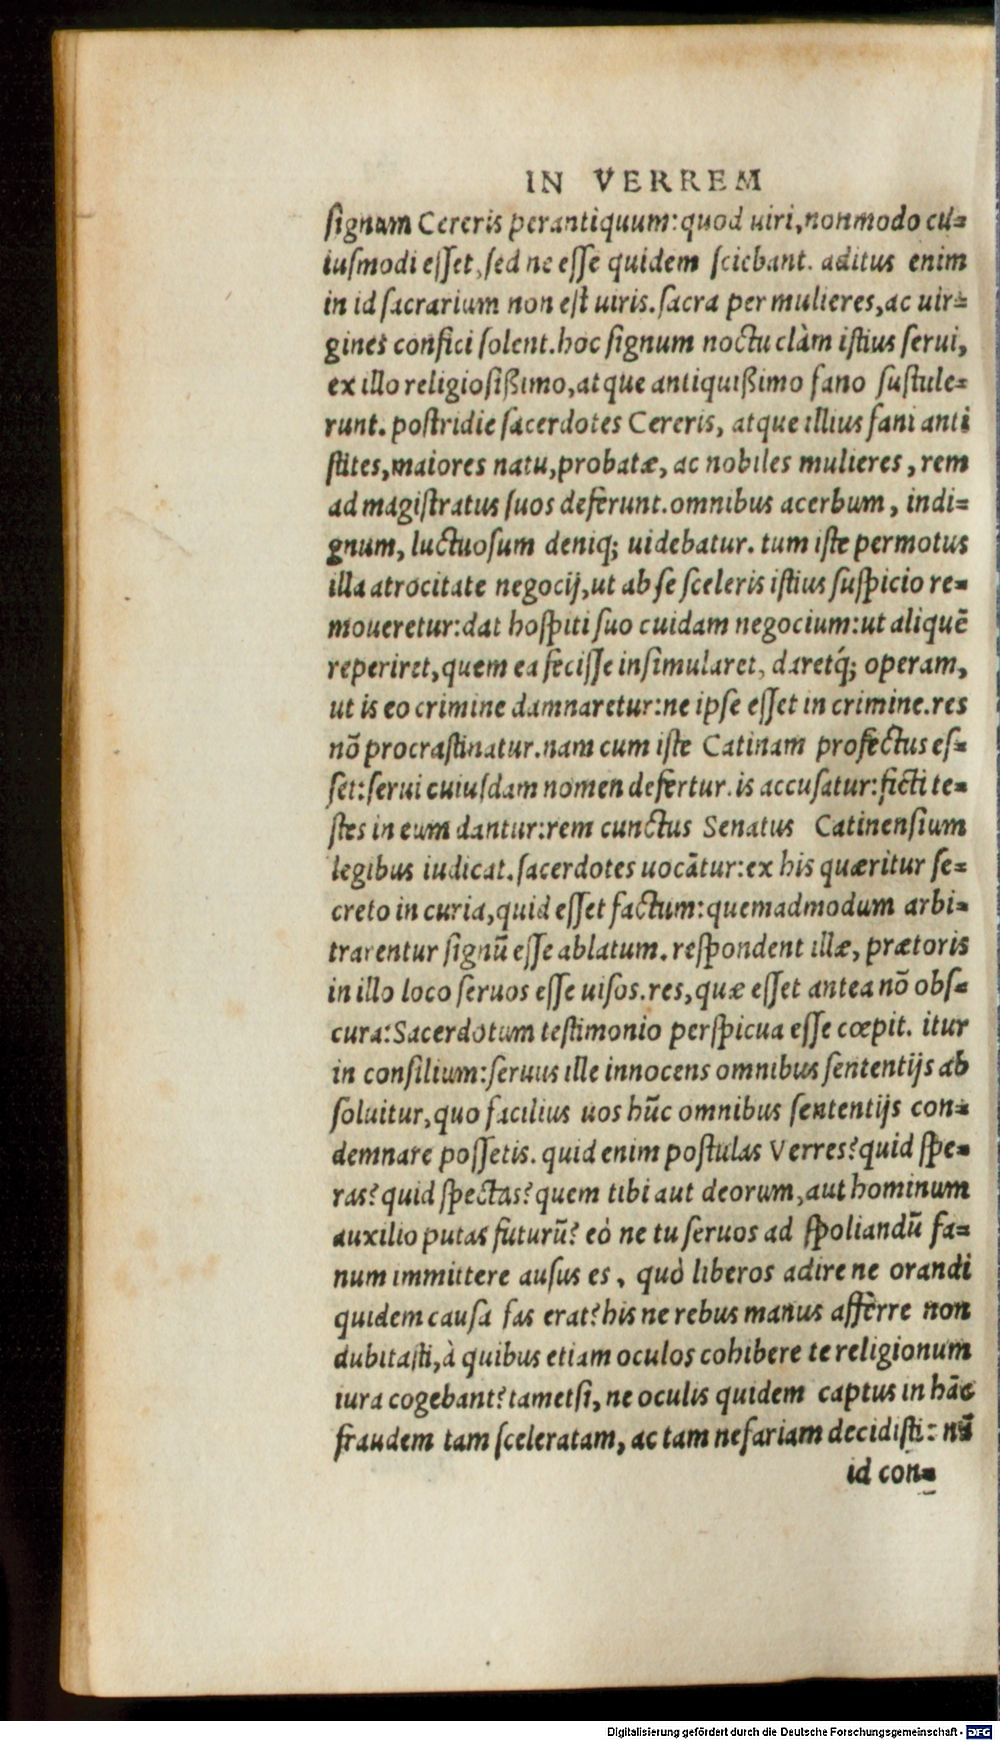 IN VERREM
signum Cereris perantiquum:quod uiri,nonmodo cu=
iusmodi esset,sed ne esse quidem sciebant. aditus enim
in id sacrarium non est uiris.sacra per mulieres,ac uir=
gines confici solent.hoc signum noctu clàm istius serui,
ex illo religiosißimo,atque antiquißimo fano sustule=
runt. postridie sacerdotes Cereris, atque illius fani anti
stites,maiores natu,probatæ, ac nobiles mulieres, rem
ad magistratus suos deferunt.omnibus acerbum, indi=
gnum, luctuosum deniq; uidebatur. tum iste permotus
illa atrocitate negocij,ut ab se sceleris istius suspicio re=
moueretur:dat hospiti suo cuidam negocium:ut aliquē
reperiret,quem ea fecisse insimularet, daretq́; operam,
ut is eo crimine damnaretur:ne ipse esset in crimine.res
nō procrastinatur.nam cum iste Catinam profectus es=
set:serui cuiusdam nomen defertur.is accusatur:ficti te=
stes in eum dantur:rem cunctus Senatus Catinensium
legibus iudicat.sacerdotes uocātur:ex his quæritur se=
creto in curia,quid esset factum:quemadmodum arbi=
trarentur signū esse ablatum.respondent illæ, prætoris
in illo loco seruos esse uisos.res,quæ esset antea nō obs=
cura:Sacerdotum testimonio perspicua esse cœpit. itur
in consilium:seruus ille innocens omnibus sententijs ab
soluitur,quo facilius uos hūc omnibus sententijs con=
demnare possetis. quid enim postulas Verres?quid spe=
ras?quid spectas?quem tibi aut deorum,aut hominum
auxilio putas futurū? eò ne tu seruos ad spoliandū fa=
num immittere ausus es, quò liberos adire ne orandi
quidem causa fas erat?his ne rebus manus afferre non
dubitasti,à quibus etiam oculos cohibere te religionum
iura cogebant?tametsi,ne oculis quidem captus in hāc
fraudem tam sceleratam, ac tam nefariam decidisti: nā
id con=
Digitalisierung gefördert durch die Deutsche Forschungsgemeinschaft - DFG